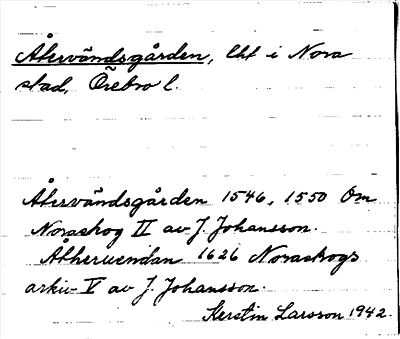 Återvändsgården, lht i Nora
stad, Örebro l.
Återvändsgården 1546, 1550 Om
Noraskog II av J. Johansson.
Åtherwendan 1626 Noraskogs
arkiv V av J. Johansson.
Kerstin Larsson 1942.